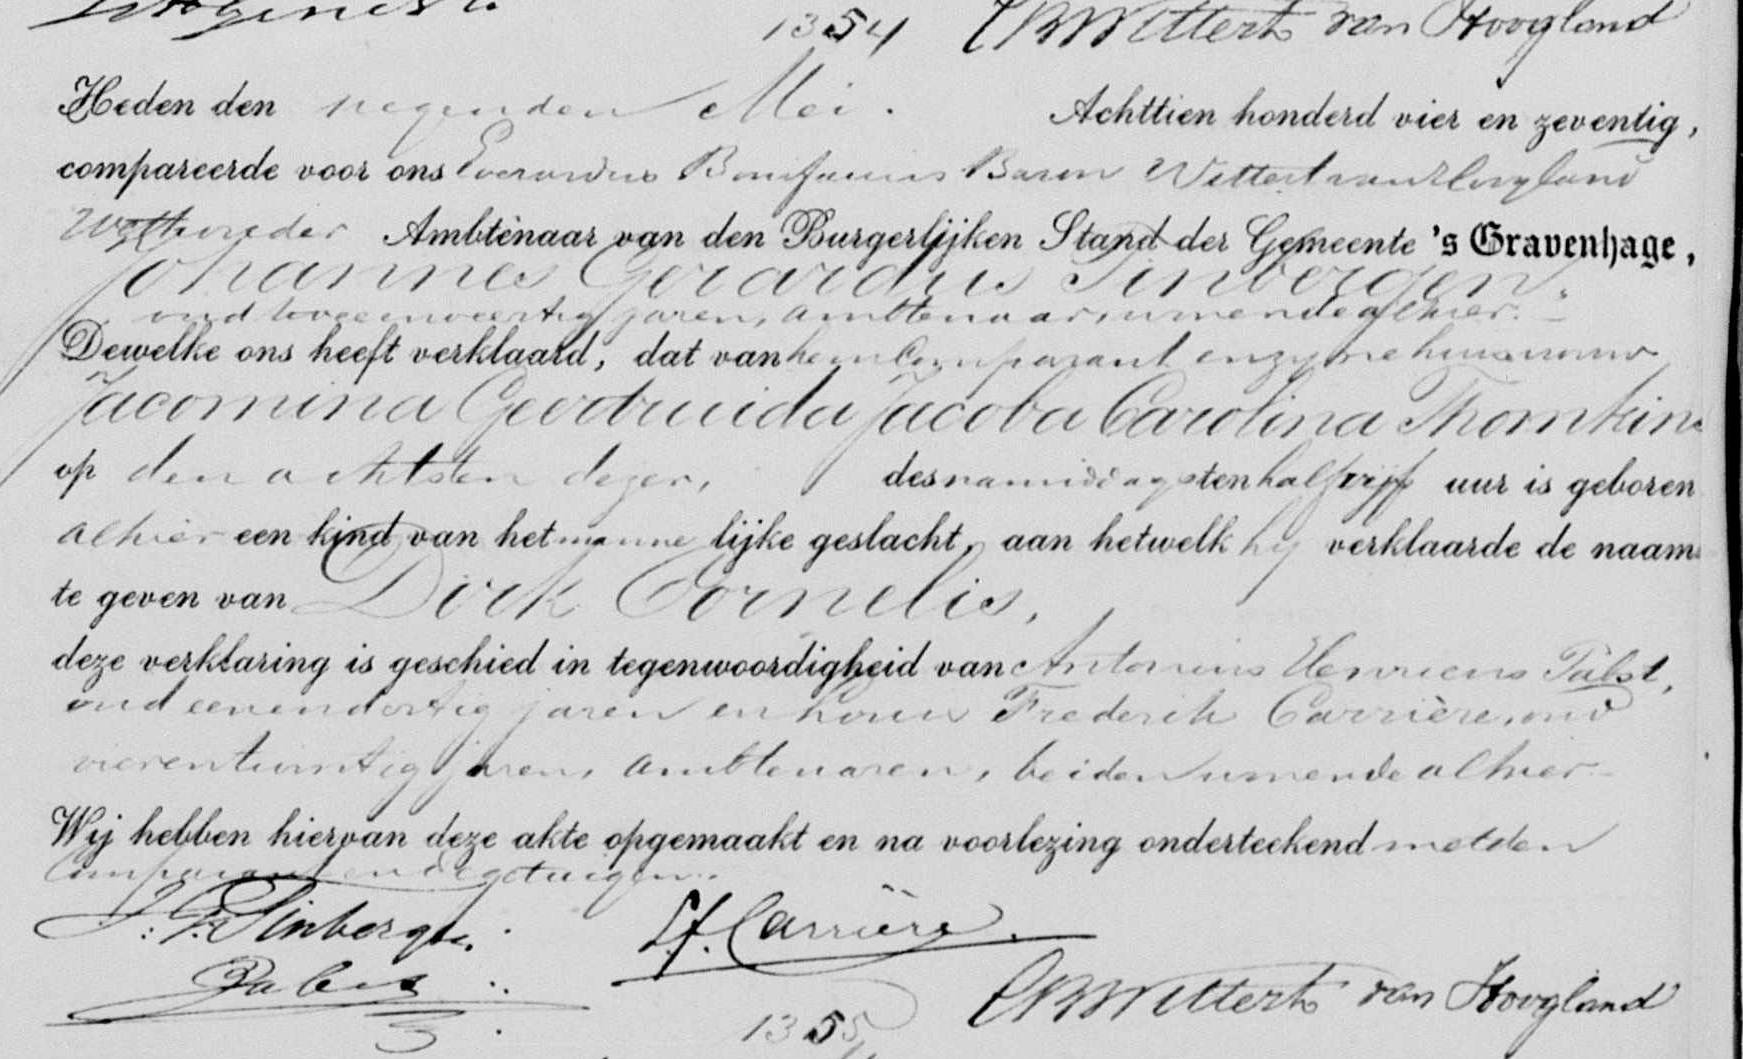 1354
EBFWittert van Hoogland
Heden den negenden Mei. Achttien honderd vier en zeventig,
compareerde voor ons Everardus Bonifacius Baron Wittert van Hoogland
Wethouder Ambtenaar van den Burgerlijken Stand der Gemeente 's Gravenhage,
Johannes Gerardus Tinbergen,
oud tweeenveertig jaren, ambtenaar, wonende alhier.
Dewelke ons heeft verklaard, dat van hem Comparant en zyne huisvrouw
Jacomina Geertruida Jacoba Carolina Thomkins
op den achtsten dezer, des namiddags ten half vijf uur is geboren
alhier een kind van het manne lijke geslacht, aan hetwelk hy verklaarde de naam
te geven van Dirk Cornelis,
deze verklaring is geschied in tegenwoordigheid van Antonius Henricus Pabst,
oud eenendertig jaren en Louis Frederik Carrière, oud
vierentwintig jaren, ambtenaren, beiden wonende alhier.
Wij hebben hiervan deze akte opgemaakt en na voorlezing onderteekend met den
Comparant en de getuigen.
J. G. Tinbergen.
L.f. Carrière.
Pabst
EBFWittert van Hoogland
1355